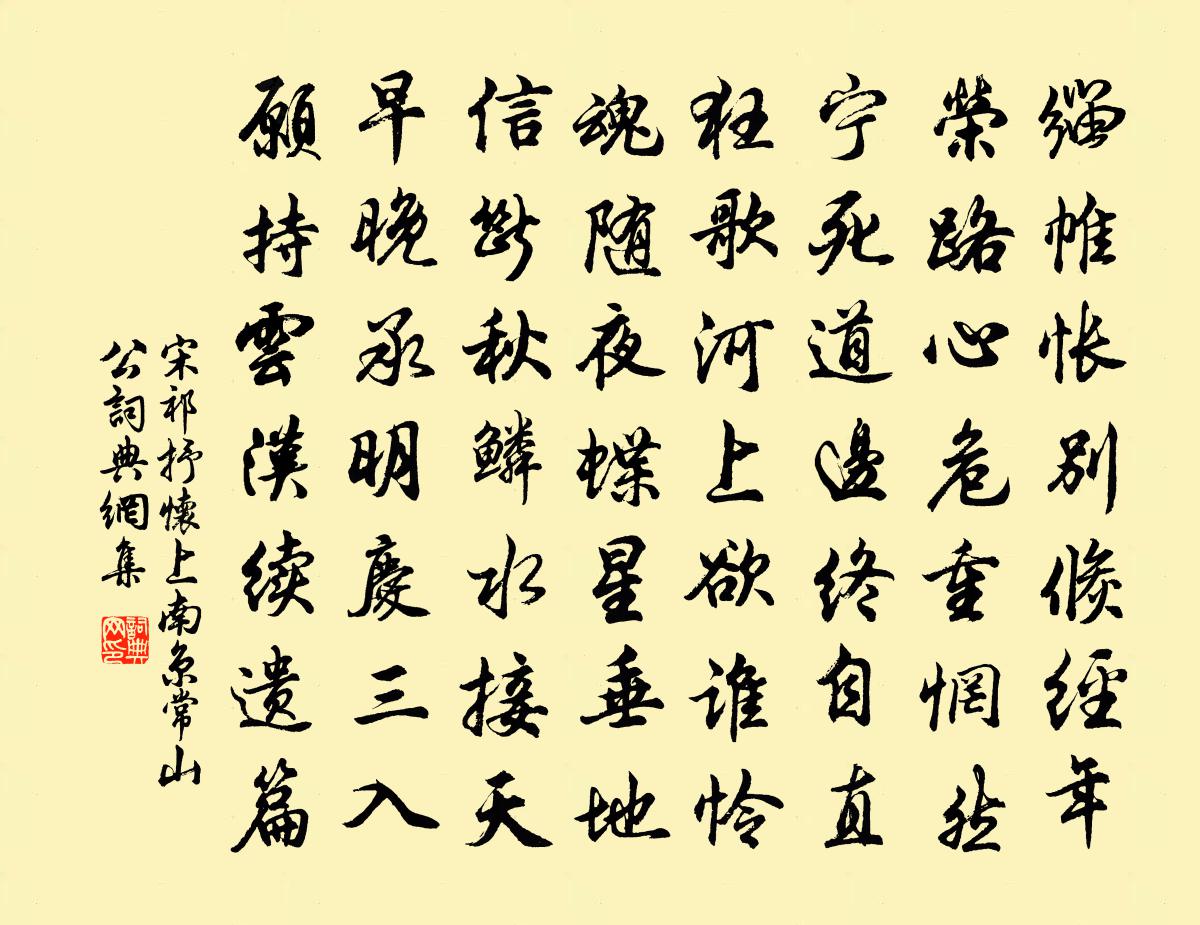 緇帷怅别倏經年
榮路心危重惘然
宁死道邊终自直
狂歌河上欲谁怜
魂随夜蝶星垂地
信斷秋鱗水接天
早晚承明慶三入
願持雲漢续遗篇
宋祁抒懷上南京常山
公詞典網集
詞典
网印